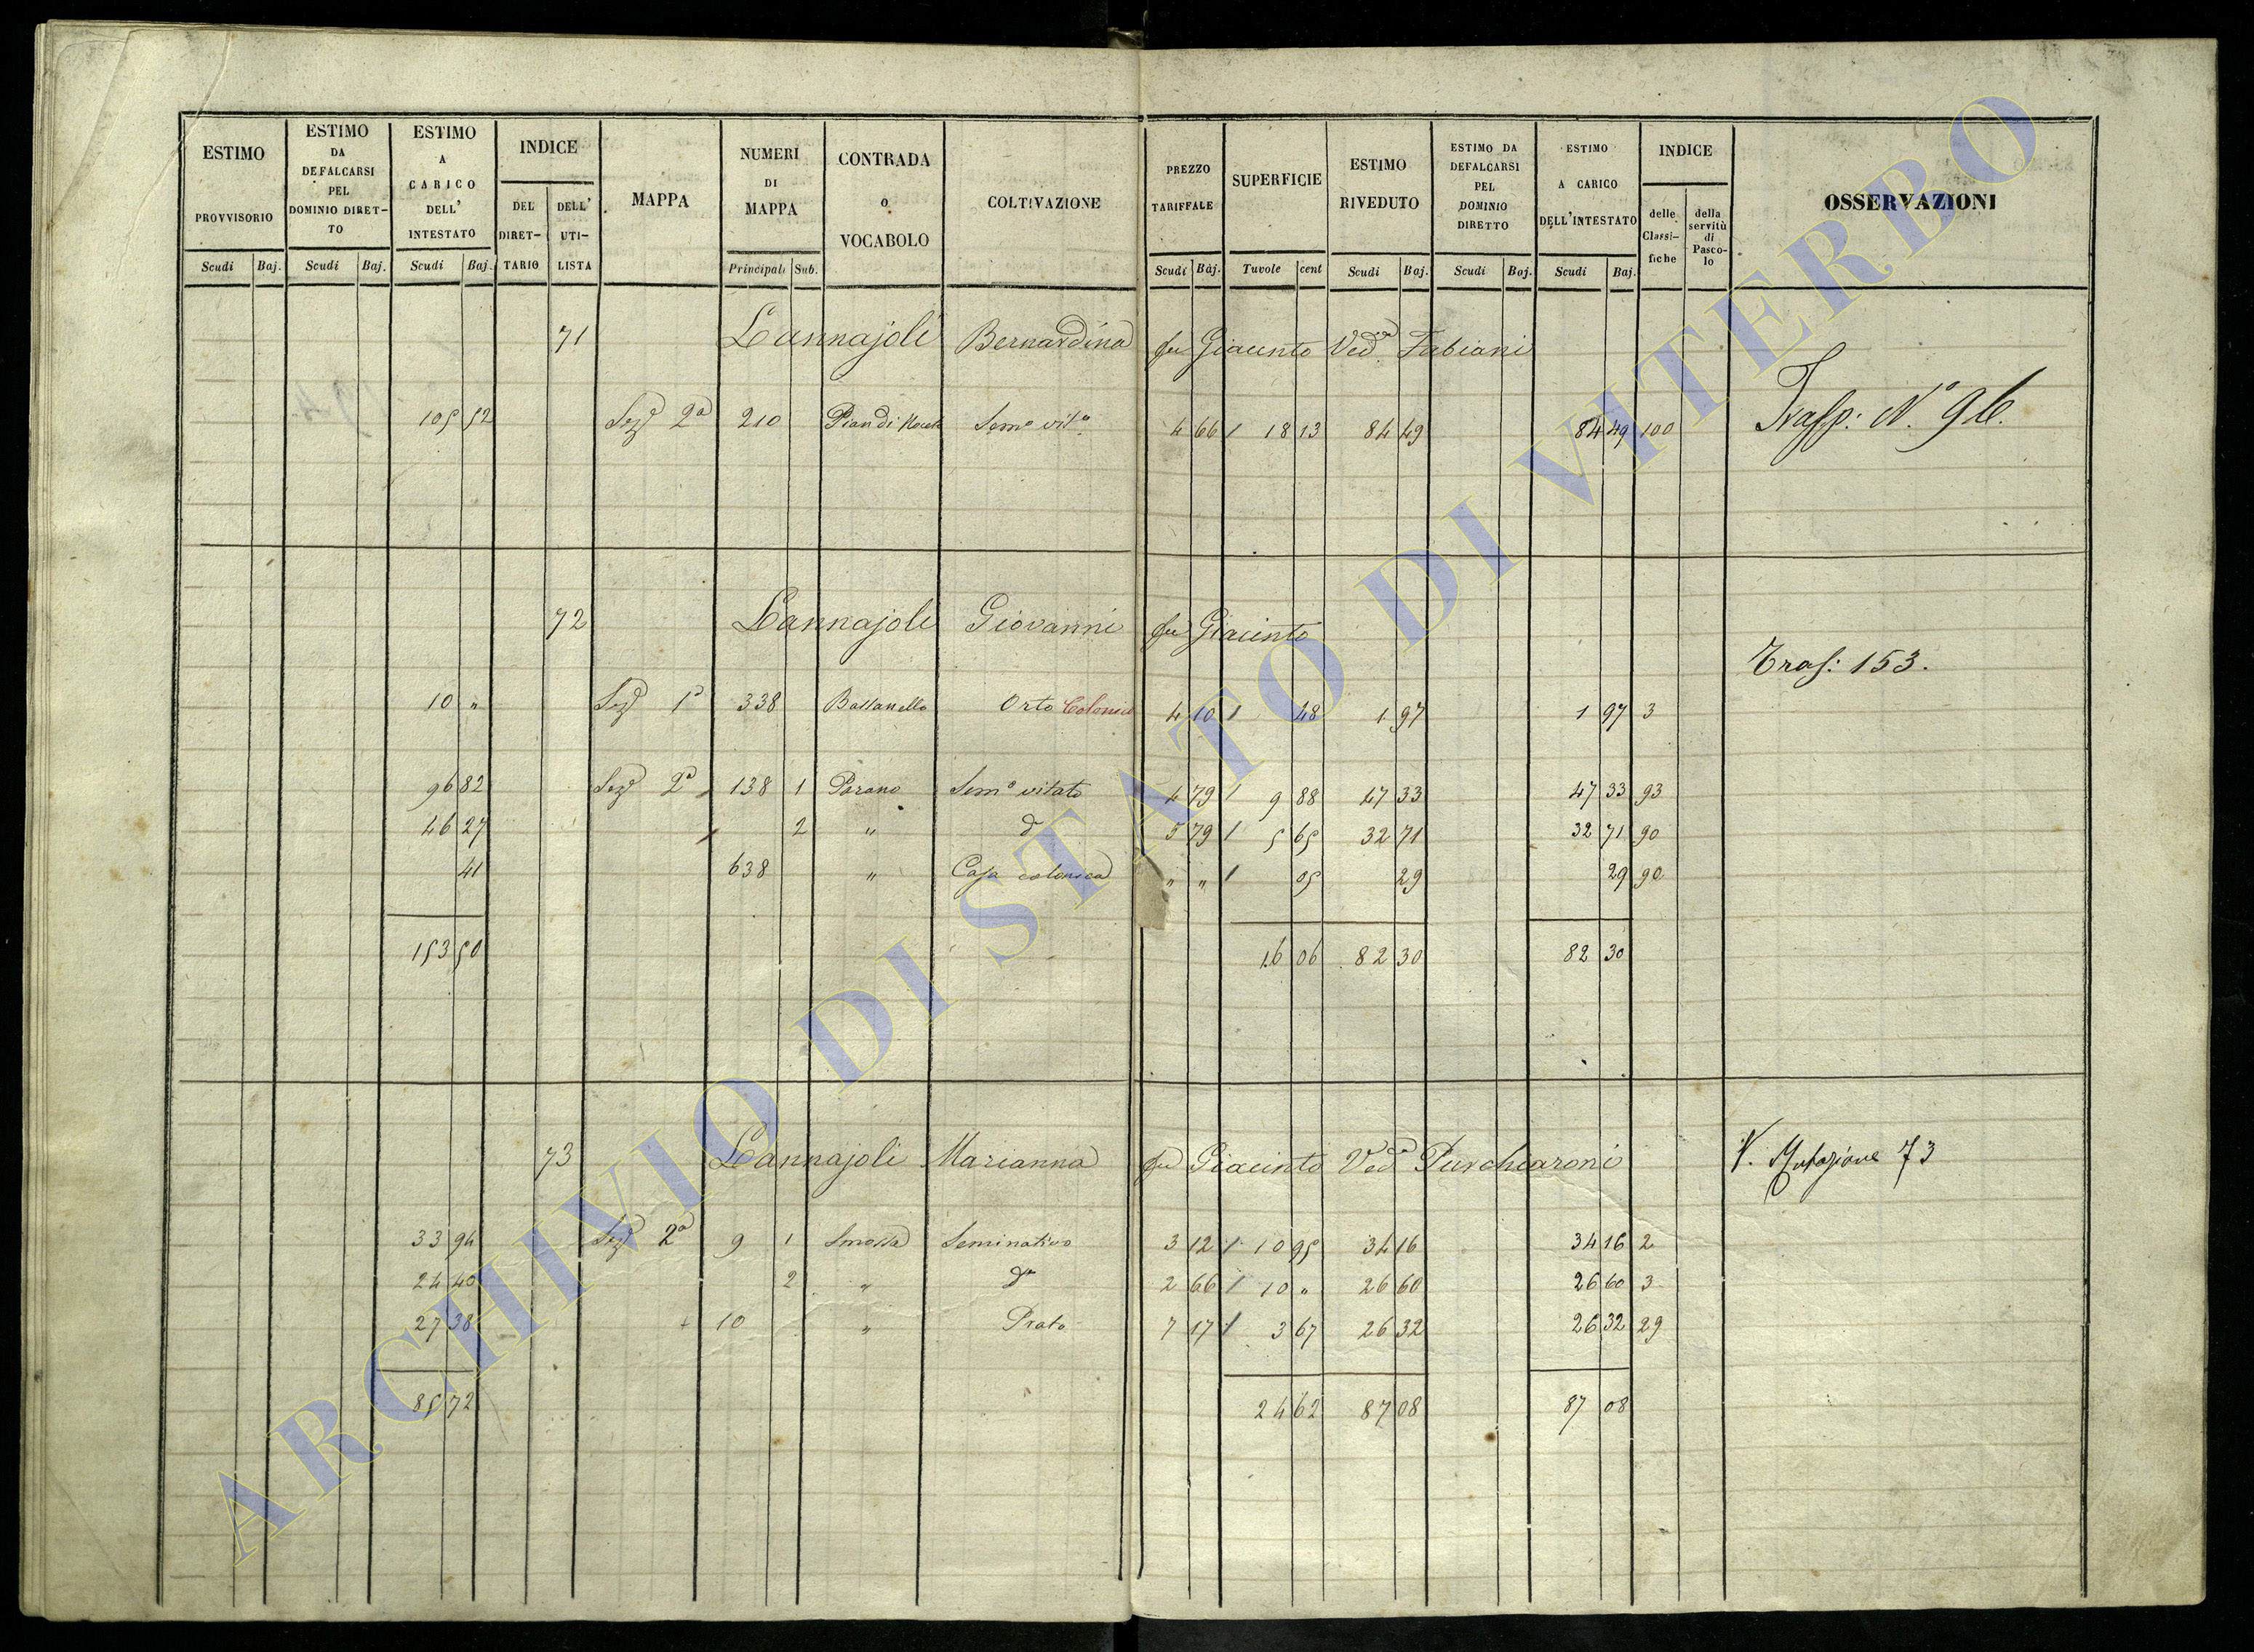 ESTIMO PROVVISORIO Scudi Baj.
ESTIMO DA DEFALCARSI PEL DOMINIO DIRET-TO Scudi Baj.
ESTIMO A CARICO DELL' INTESTATO Scudi Baj.
INDICE DEL DIRET-TARIO DELL' UTI-LISTA
MAPPA
NUMERI DI MAPPA Principali Sub.
CONTRADA O VOCABOLO
COLTIVAZIONE
PREZZO TARIFFALE Scudi Baj.
SUPERFICIE Tavole cent
ESTIMO RIVEDUTO Scudi Baj.
ESTIMO DA DEFALCARSI PEL DOMINIO DIRETTO Scudi Baj.
ESTIMO A CARICO DELL'INTESTATO Scudi Baj.
INDICE delle Classi-fiche della servitù di Pasco-lo
OSSERVAZIONI
71 Lannajoli Bernardina fu Giacinto Ved.a Fabiani
105 52 Sez.e 2a 210 Pian di Sem.o vit.o 4 66 18 13 84 49 84 49 100 Trasp: N.o 96.
72 Lannajoli Giovanni fu Giacinto
Tras: 153.
10 „ Sez.e 1a 338 Bassanello Orto Colonico 4 10 48 1 97 1 97 3
96 82 Sez.e 2a 138 1 Parano Sem.o vitato 4 79 9 88 47 33 47 33 93
46 27 2 „ d.o 5 79 5 65 32 71 32 71 90
41 638 „ Casa colonica „ „ 05 29 29 90
153 50 16 06 82 30 82 30
73 Lannajoli Marianna fu Giacinto Ved.a Purchiaroni V. Mutazione 73
33 94 Sez.e 2a 9 1 Smossa Seminativo 3 12 10 95 34 16 34 16 2
24 40 2 „ d.o 2 66 10 „ 26 60 26 60 3
27 38 + 10 „ Prato 7 17 3 67 26 32 26 32 29
85 72 24 62 87 08 87 08
ARCHIVIO DI STATO DI VITERBO